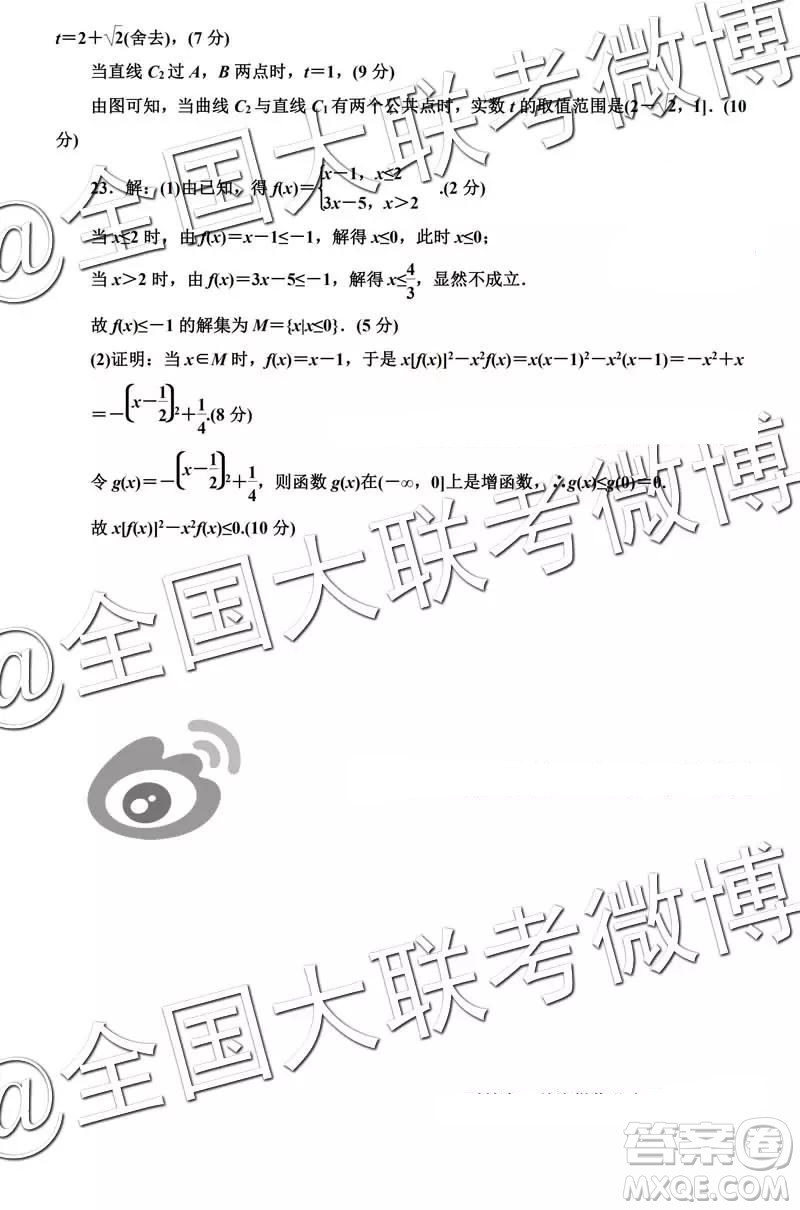 t＝2＋√2(舍去)，(7 分)
当直线 C₂ 过 A，B 两点时，t＝1，(9 分)
由图可知，当曲线 C₂ 与直线 C₁ 有两个公共点时，实数 t 的取值范围是(2－√2，1]．(10
分)
23．解：(1)由已知，得 f(x)＝{x－1，x≤2
3x－5，x＞2 .(2 分)
当 x≤2 时，由 f(x)＝x－1≤－1，解得 x≤0，此时 x≤0；
当 x＞2 时，由 f(x)＝3x－5≤－1，解得 x≤4/3，显然不成立．
故 f(x)≤－1 的解集为 M＝{x|x≤0}．(5 分)
(2)证明：当 x∈M 时，f(x)＝x－1，于是 x[f(x)]²－x²f(x)＝x(x－1)²－x²(x－1)＝－x²＋x
＝－(x－1/2)²＋1/4.(8 分)
令 g(x)＝－(x－1/2)²＋1/4，则函数 g(x)在(－∞，0]上是增函数，∴g(x)≤g(0)＝0.
故 x[f(x)]²－x²f(x)≤0.(10 分)
@全国大联考微博
@全国大联考微博
@全国大联考微博
答案卷
MXQE.COM